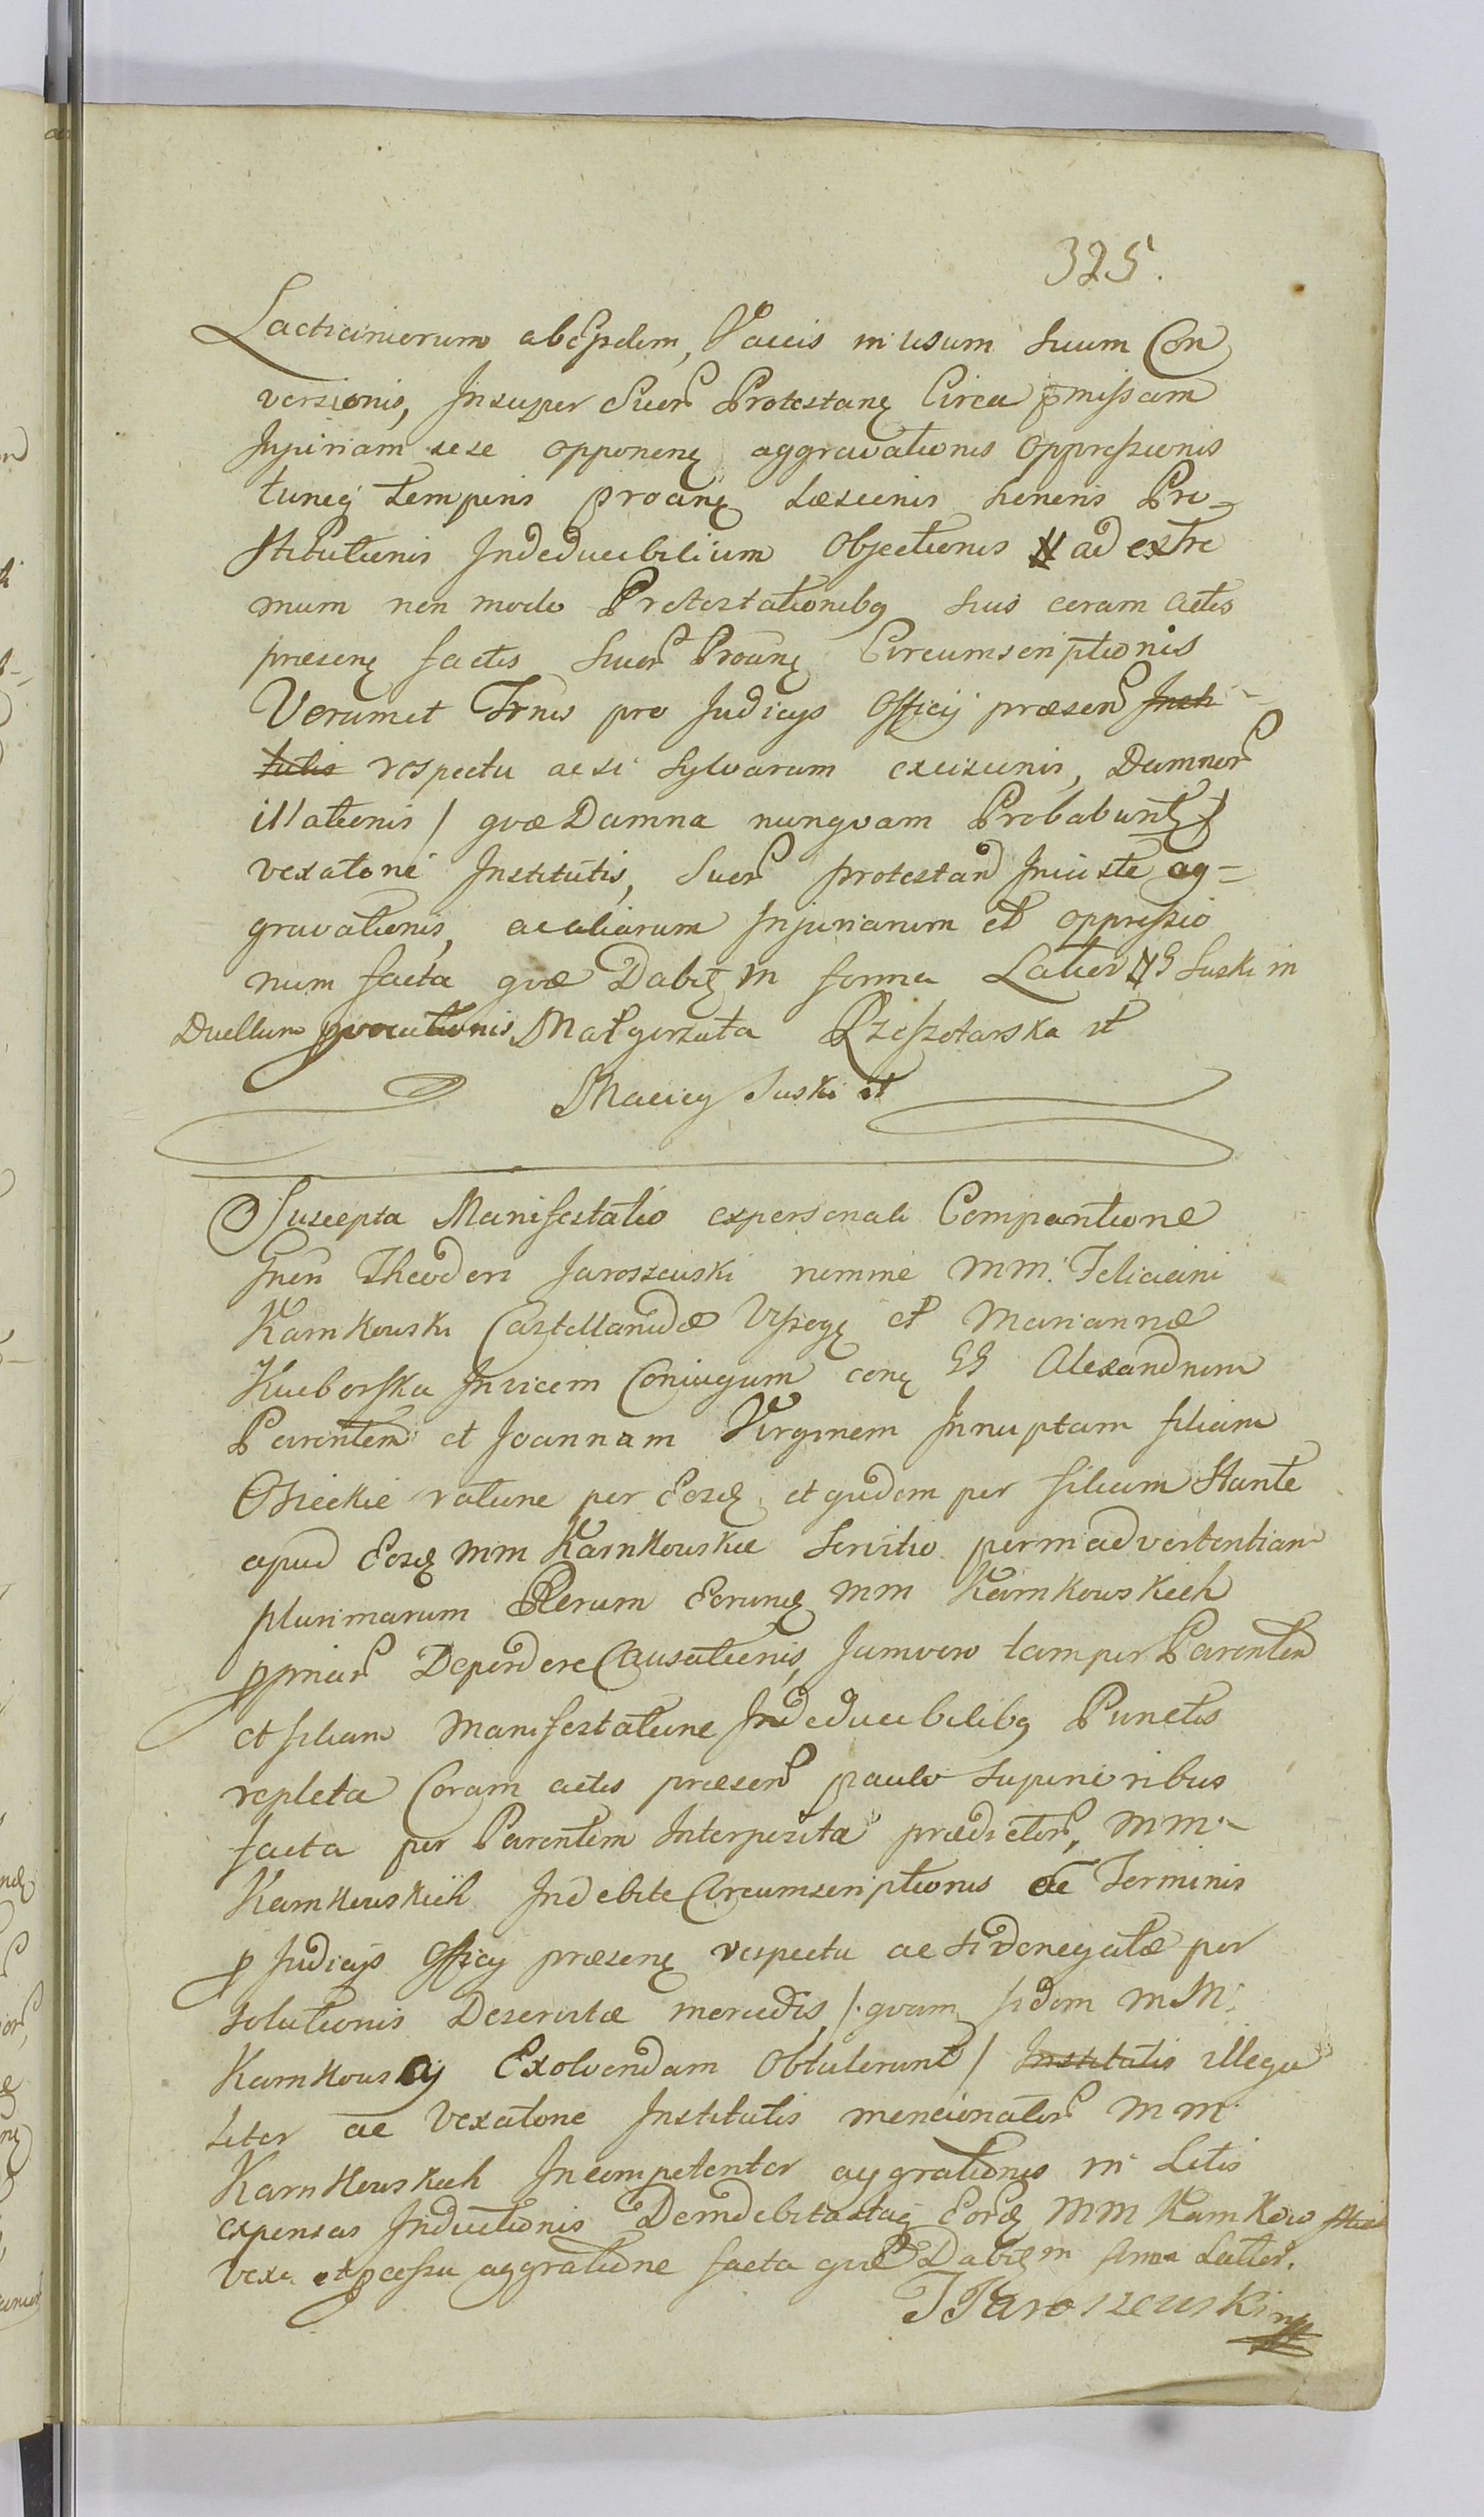 325.
Lacticiniorum ab eisdem, Vaccis in usum suum Con
versionis, Insuper Suor Protestanę Circa pmissam
Injuriam sese opponenę aggravationis oppressionis
tuncq temporis proanę Læsionis honoris Pro-
stitutionis Indeducibilium Objectionis ad extre
mum non modo Protestationibq suis coram actis
præsenę factis Suor Proanę Circumscriptionis
Verum et Trnis pro Judicijs Officij præsen Insti-
tutis respectu acsi Sylvarum excisionis, Damnor
illationis / qvæ Damna nunqvam Probabuntę /
vexatone Institutis, Suor protestan Iniuste ag=
gravationis, ac aliarum Injuriarum et oppressio
num facta qvæ Dabitę in forma Latior G Suski in
Duellum provocationis Małgorzata Rzeszotarska st
Maciey Suski st
Suscepta Manifestatio ex personali Comparitione
Gnen Theodori Jaroszewski nomine MM. Feliciani
Karnkowski Castellanidæ Vyszogę et Mariannæ
Kuçborska Invicem Coniugum conę GG Alexandrum
Parentem et Joannam Virginem Innuptam filiam
Osieckie ratione per Eosdę et qvidem per filiam Stante
apud Eosdę MM Karnkowskie Servitio per inadvertentiam
plurimarum Rerum Eorundę MM Karnkowskich
ppriar Deperdere Causationis, Jam vero tam per Parentem
et filiam Manifestatione Indeducibilibq Punctis
repleta Coram actis præsen paulo superioribus
facta per Parentem Interposita prædictor, MM.-
Karnkowskich Indebite Circumscriptionis ac Terminis
p Judicijs Officij præsenę respectu ac si denegatæ per
solutionis Deservitæ mercedis, /. qvam sidem MM.
Karnkowscy Exolvendam Obtulerunt / Institutis illega
liter ac Vexatone Institutis mencionator MM.
Karnkowskich Incompetenter aggrationis in Litis
expensas Inductionis Deindebita staę Eordę MM Karnkowskich
Vexa et pcessu aggratione facta qvæ Dabitę in forma Latior.
TJaroszewski mp